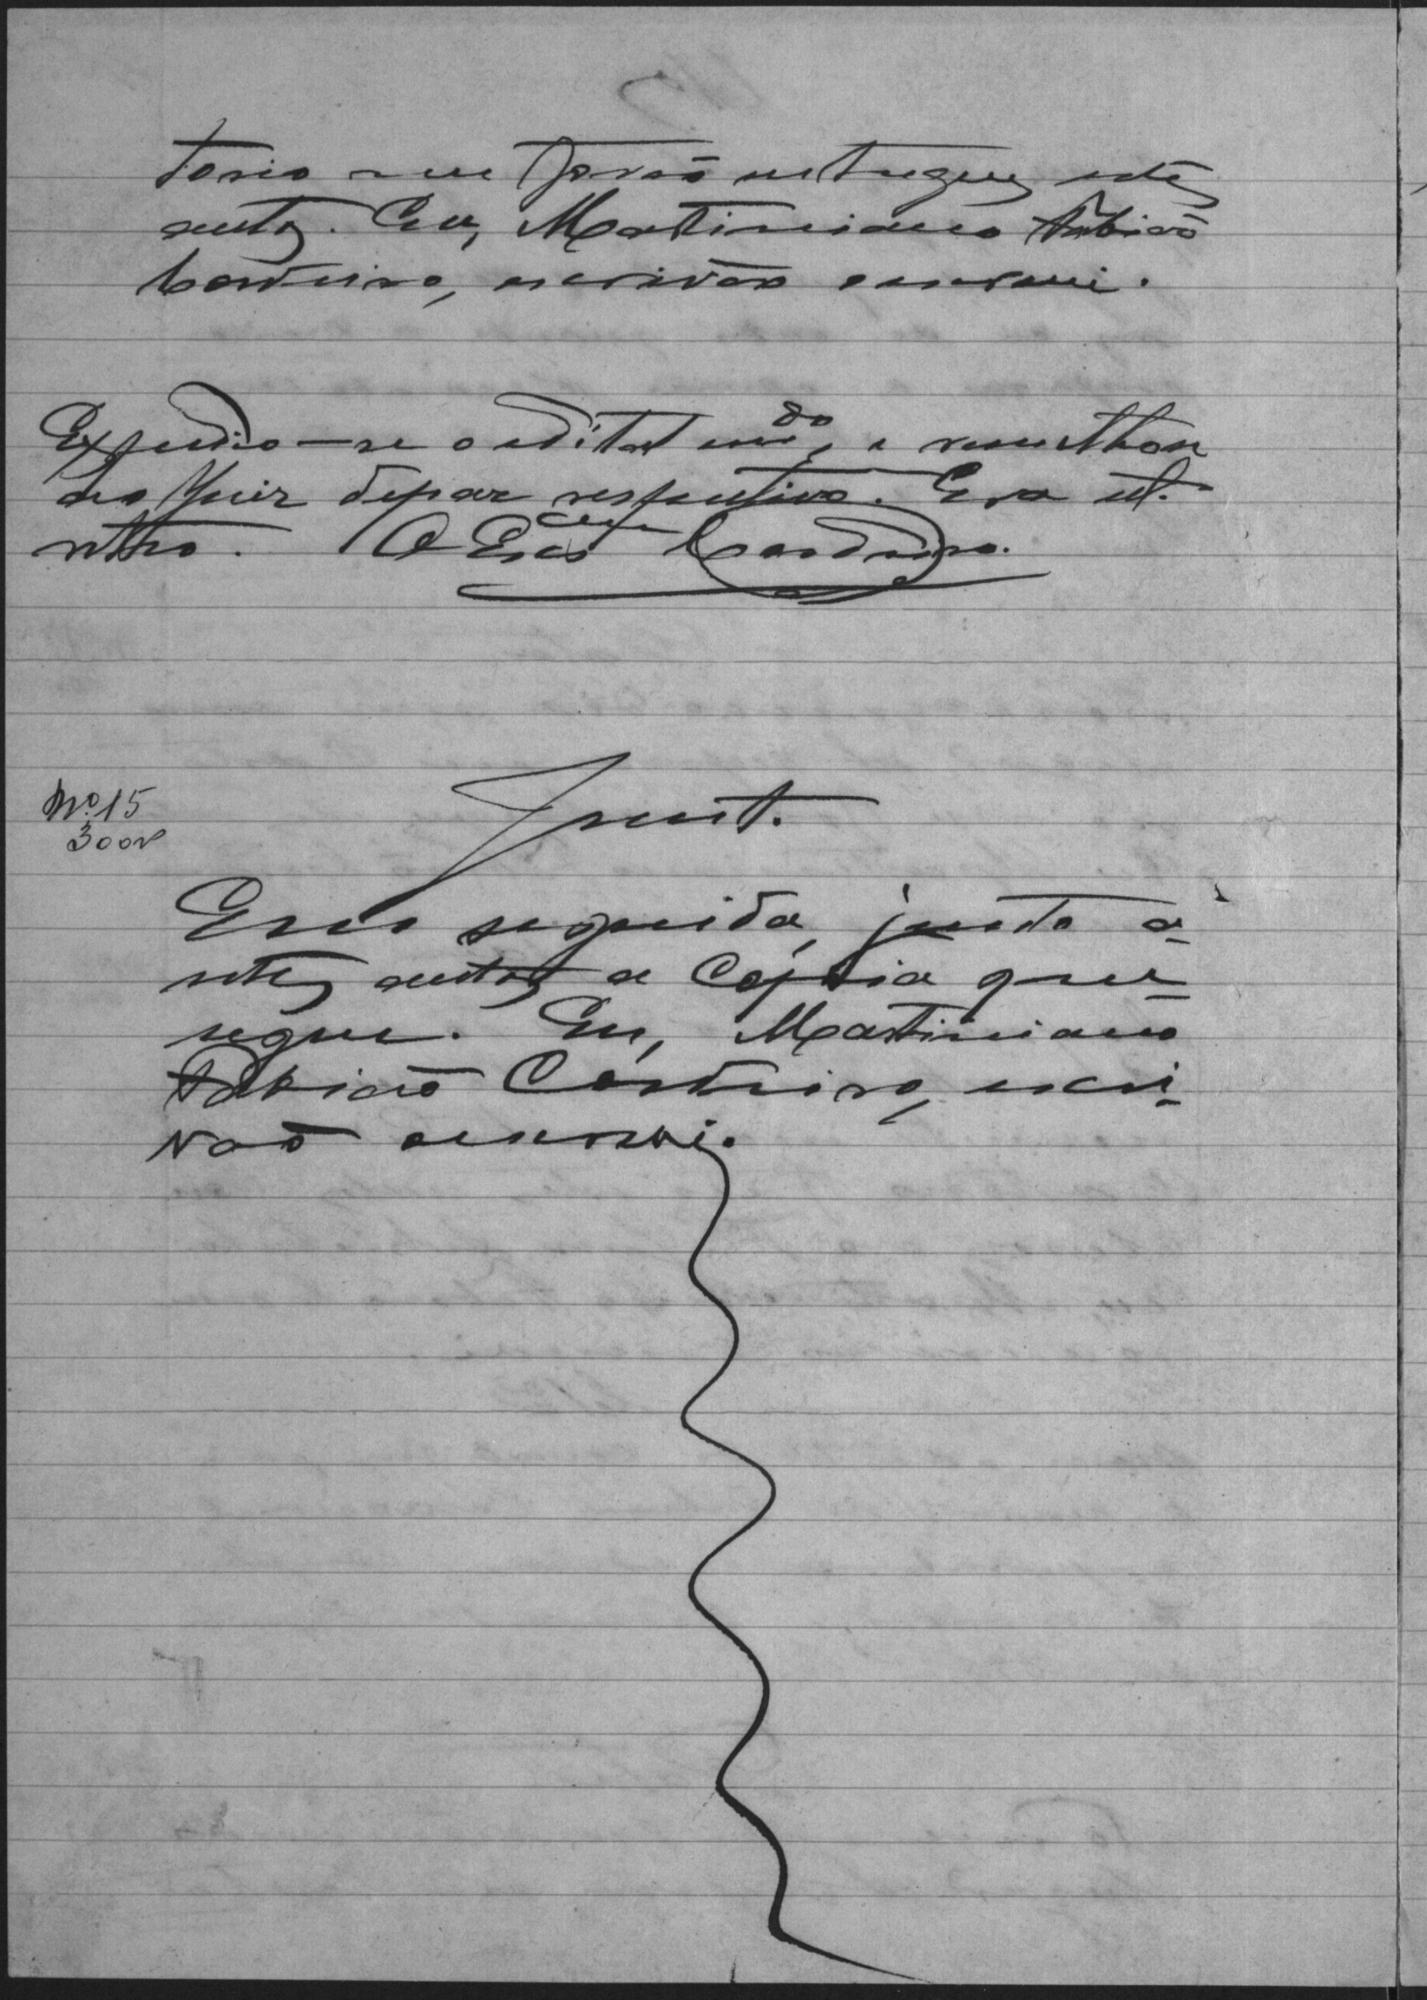 torio me forão entregues estes
autos. Eu, Martiniano Fabião
Cordeiro, escrivão escrevi.
Expedio-se o edital e remetteu-se
ao Juiz de paz respectivo. Era ut
retro. O Escrivão Cordeiro.
Nº 15
300rs
Junt.
Em seguida, junto a
estes autos a Cópia que
segue. Eu, Martiniano
Fabião Cordeiro, escri-
vão escrevi.